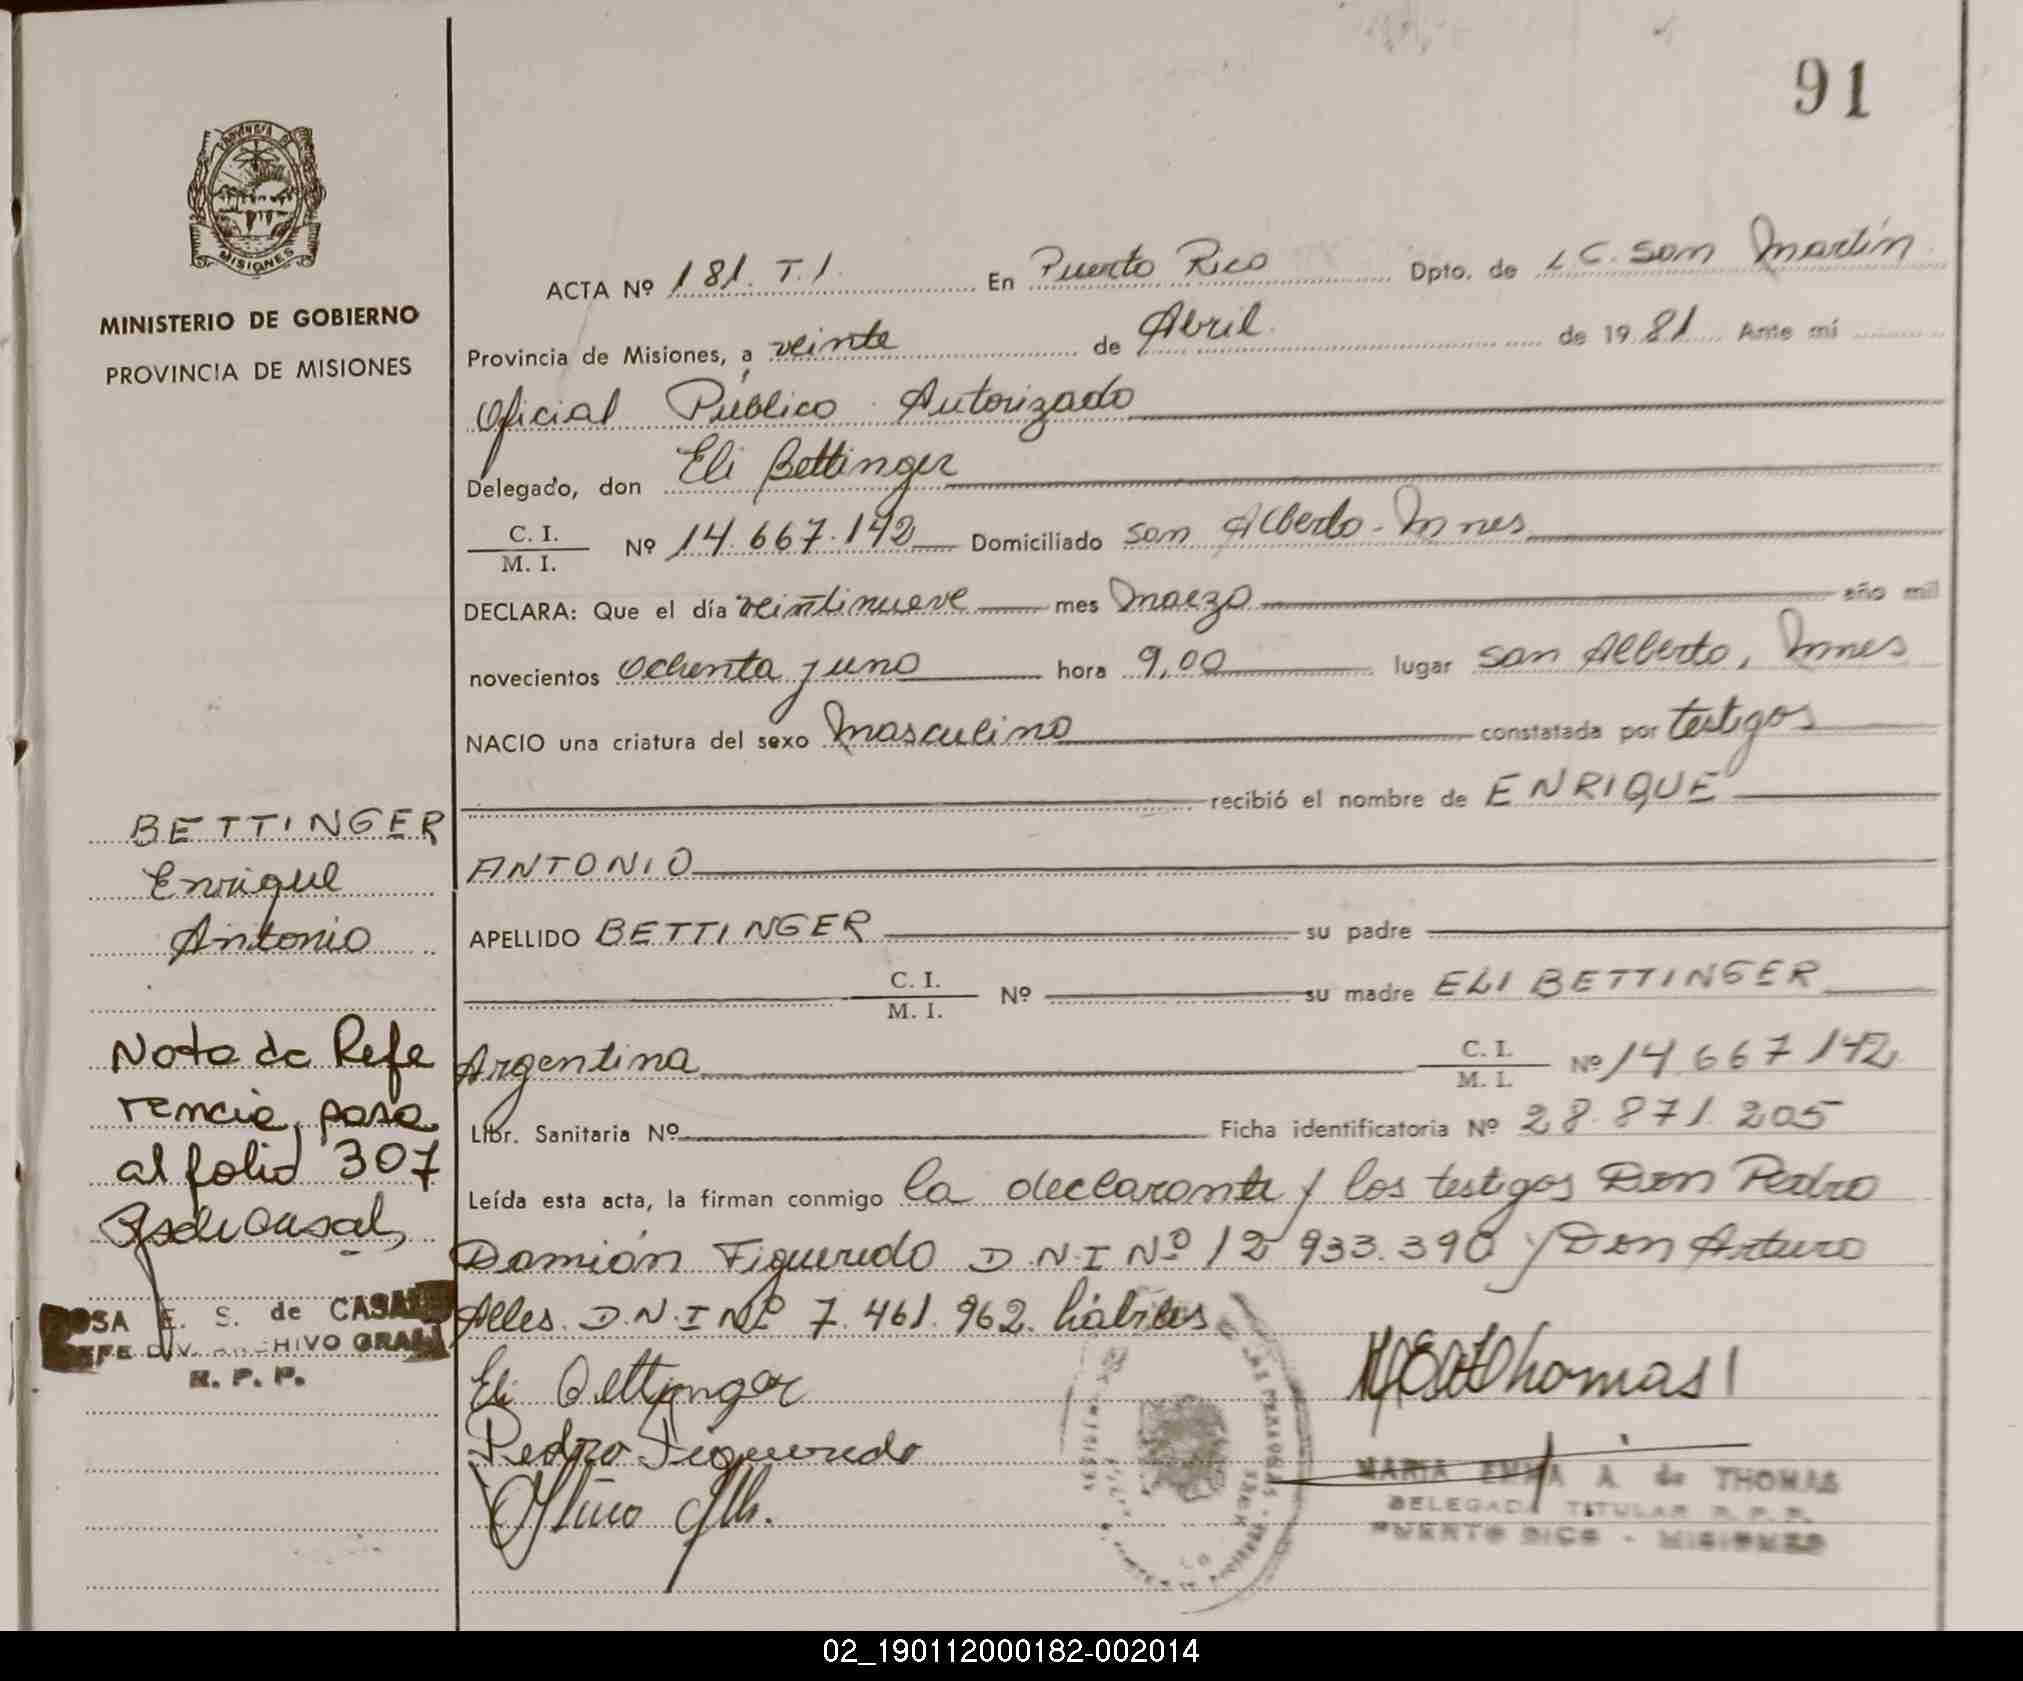 91
PROVINCIA DE
MISIONES
MINISTERIO DE GOBIERNO
PROVINCIA DE MISIONES
ACTA Nº 181. T.1. En Puerto Rico Dpto. de L.G. San Martín
Provincia de Misiones, a veinte de Abril de 1981 Ante mí
Oficial Público Autorizado
Delegado, don Eli Bettinger
C. I.
M. I. Nº 14.667.142 Domiciliado San Alberto - Mnes
DECLARA: Que el día veintinueve mes Marzo año mil
novecientos ochenta y uno hora 9,00 lugar San Alberto, Mnes
NACIO una criatura del sexo Masculino constatada por testigos
recibió el nombre de ENRIQUE
ANTONIO
APELLIDO BETTINGER su padre
C. I.
M. I. Nº su madre ELI BETTINGER
Argentina C. I.
M. I. Nº 14.667.142
Libr. Sanitaria Nº Ficha identificatoria Nº 28.871.205
Leída esta acta, la firman conmigo la declarante y los testigos Don Pedro
Damián Figueredo D.N.I Nº 12 933.390 y Don Arturo
Alles. D.N.I Nº 7.461.962. hábiles
Eli Bettinger
Pedro Figueredo
Arturo
Thomas
MARIA EMMA A. de THOMAS
DELEGADA TITULAR R. P. P.
PUERTO RICO - MISIONES
BETTINGER
Enrique
Antonio
Nota de Refe
rencia, pasa
al folio 307
ROSA E. S. de CASAL
JEFE DIV. ARCHIVO GRAL.
R. P. P.
02_190112000182-002014